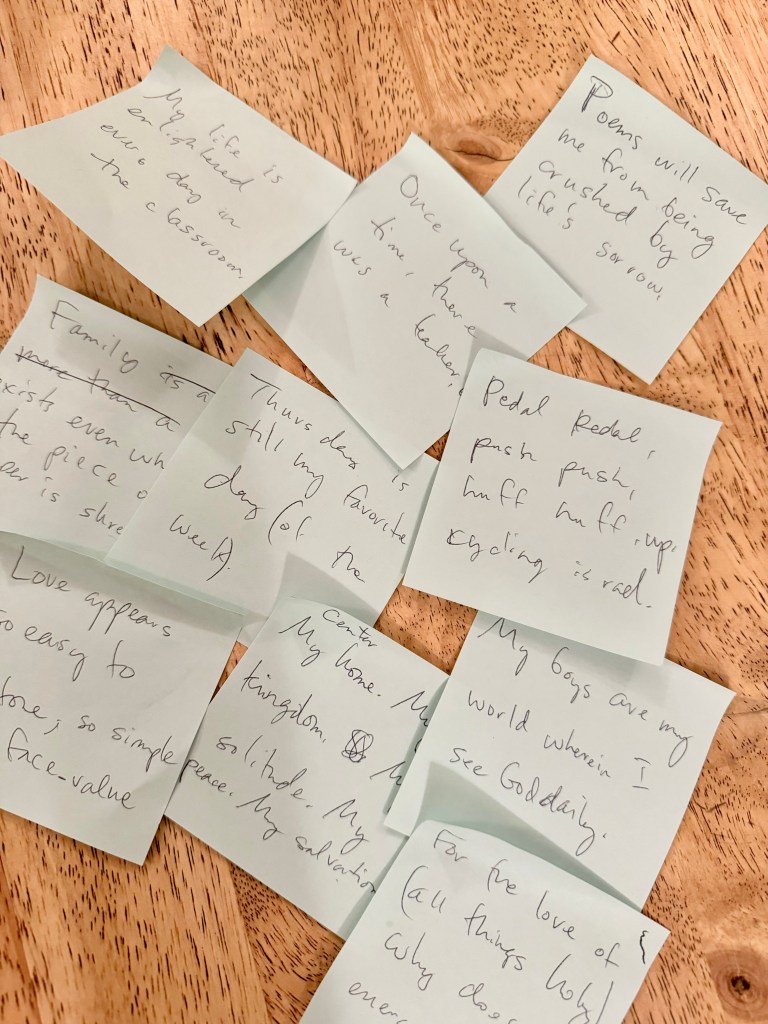 My life is
enlightened
every day in
the classroom.
Once upon a
time, there
was a teacher,
Poems will save
me from being
crushed by
life's sorrow.
Family is a
more than a
exists even wh
the piece o
per is shre
Thursday is
still my favorite
day (of the
week).
Pedal Pedal,
push push,
huff huff, up,
cycling is rad.
Love appears
so easy to
tore; so simple
face-value
Center
My home. My
kingdom. M
solitude. My
peace. My salvation
My boys are my
world wherein I
see God daily.
For the love of
(all things holy)
why does